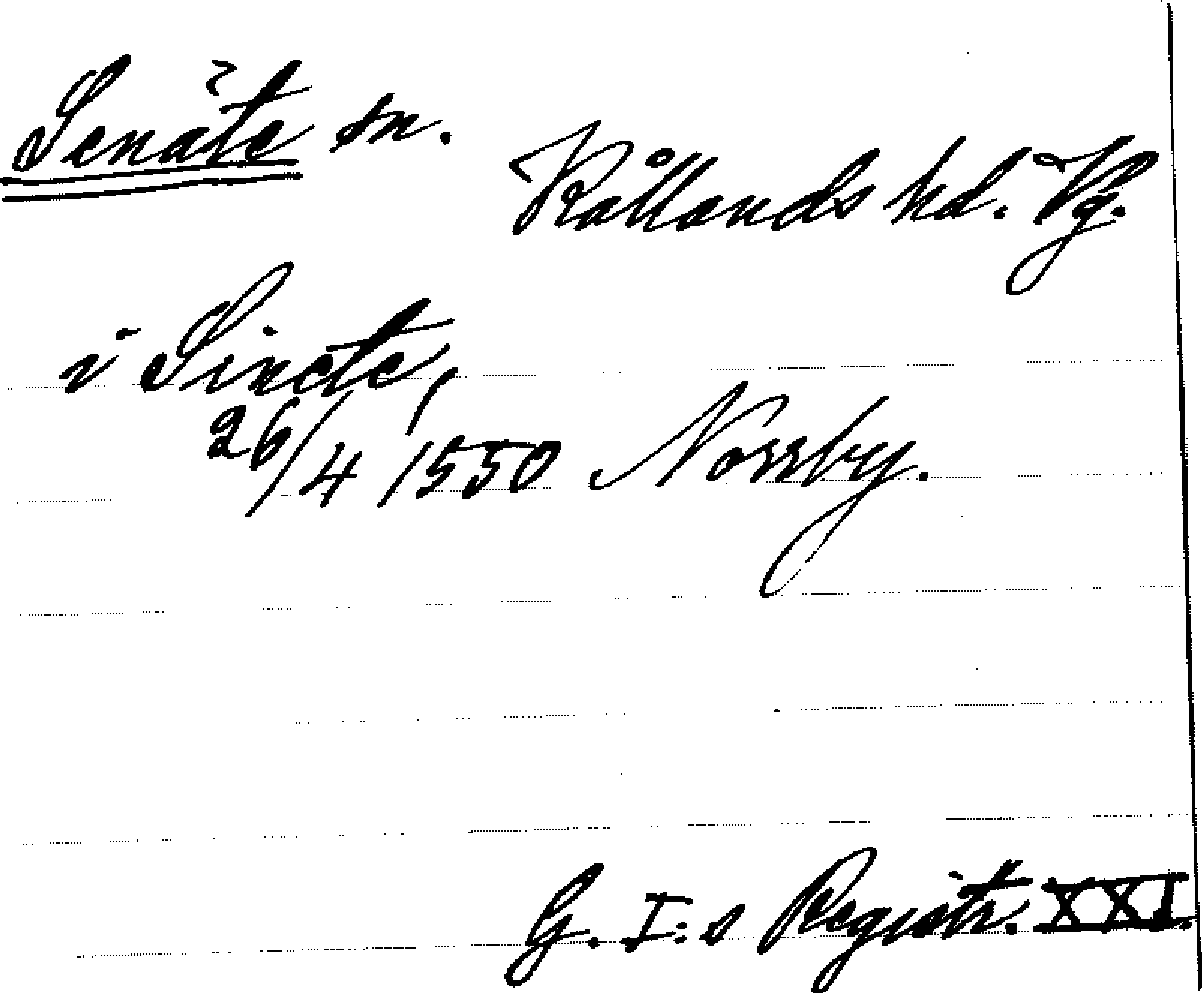 Senäte sn.
Kållands hd. Vg.
i Sinete,
26/4 1550 Norrby.
G. I:s Registr. XXI.